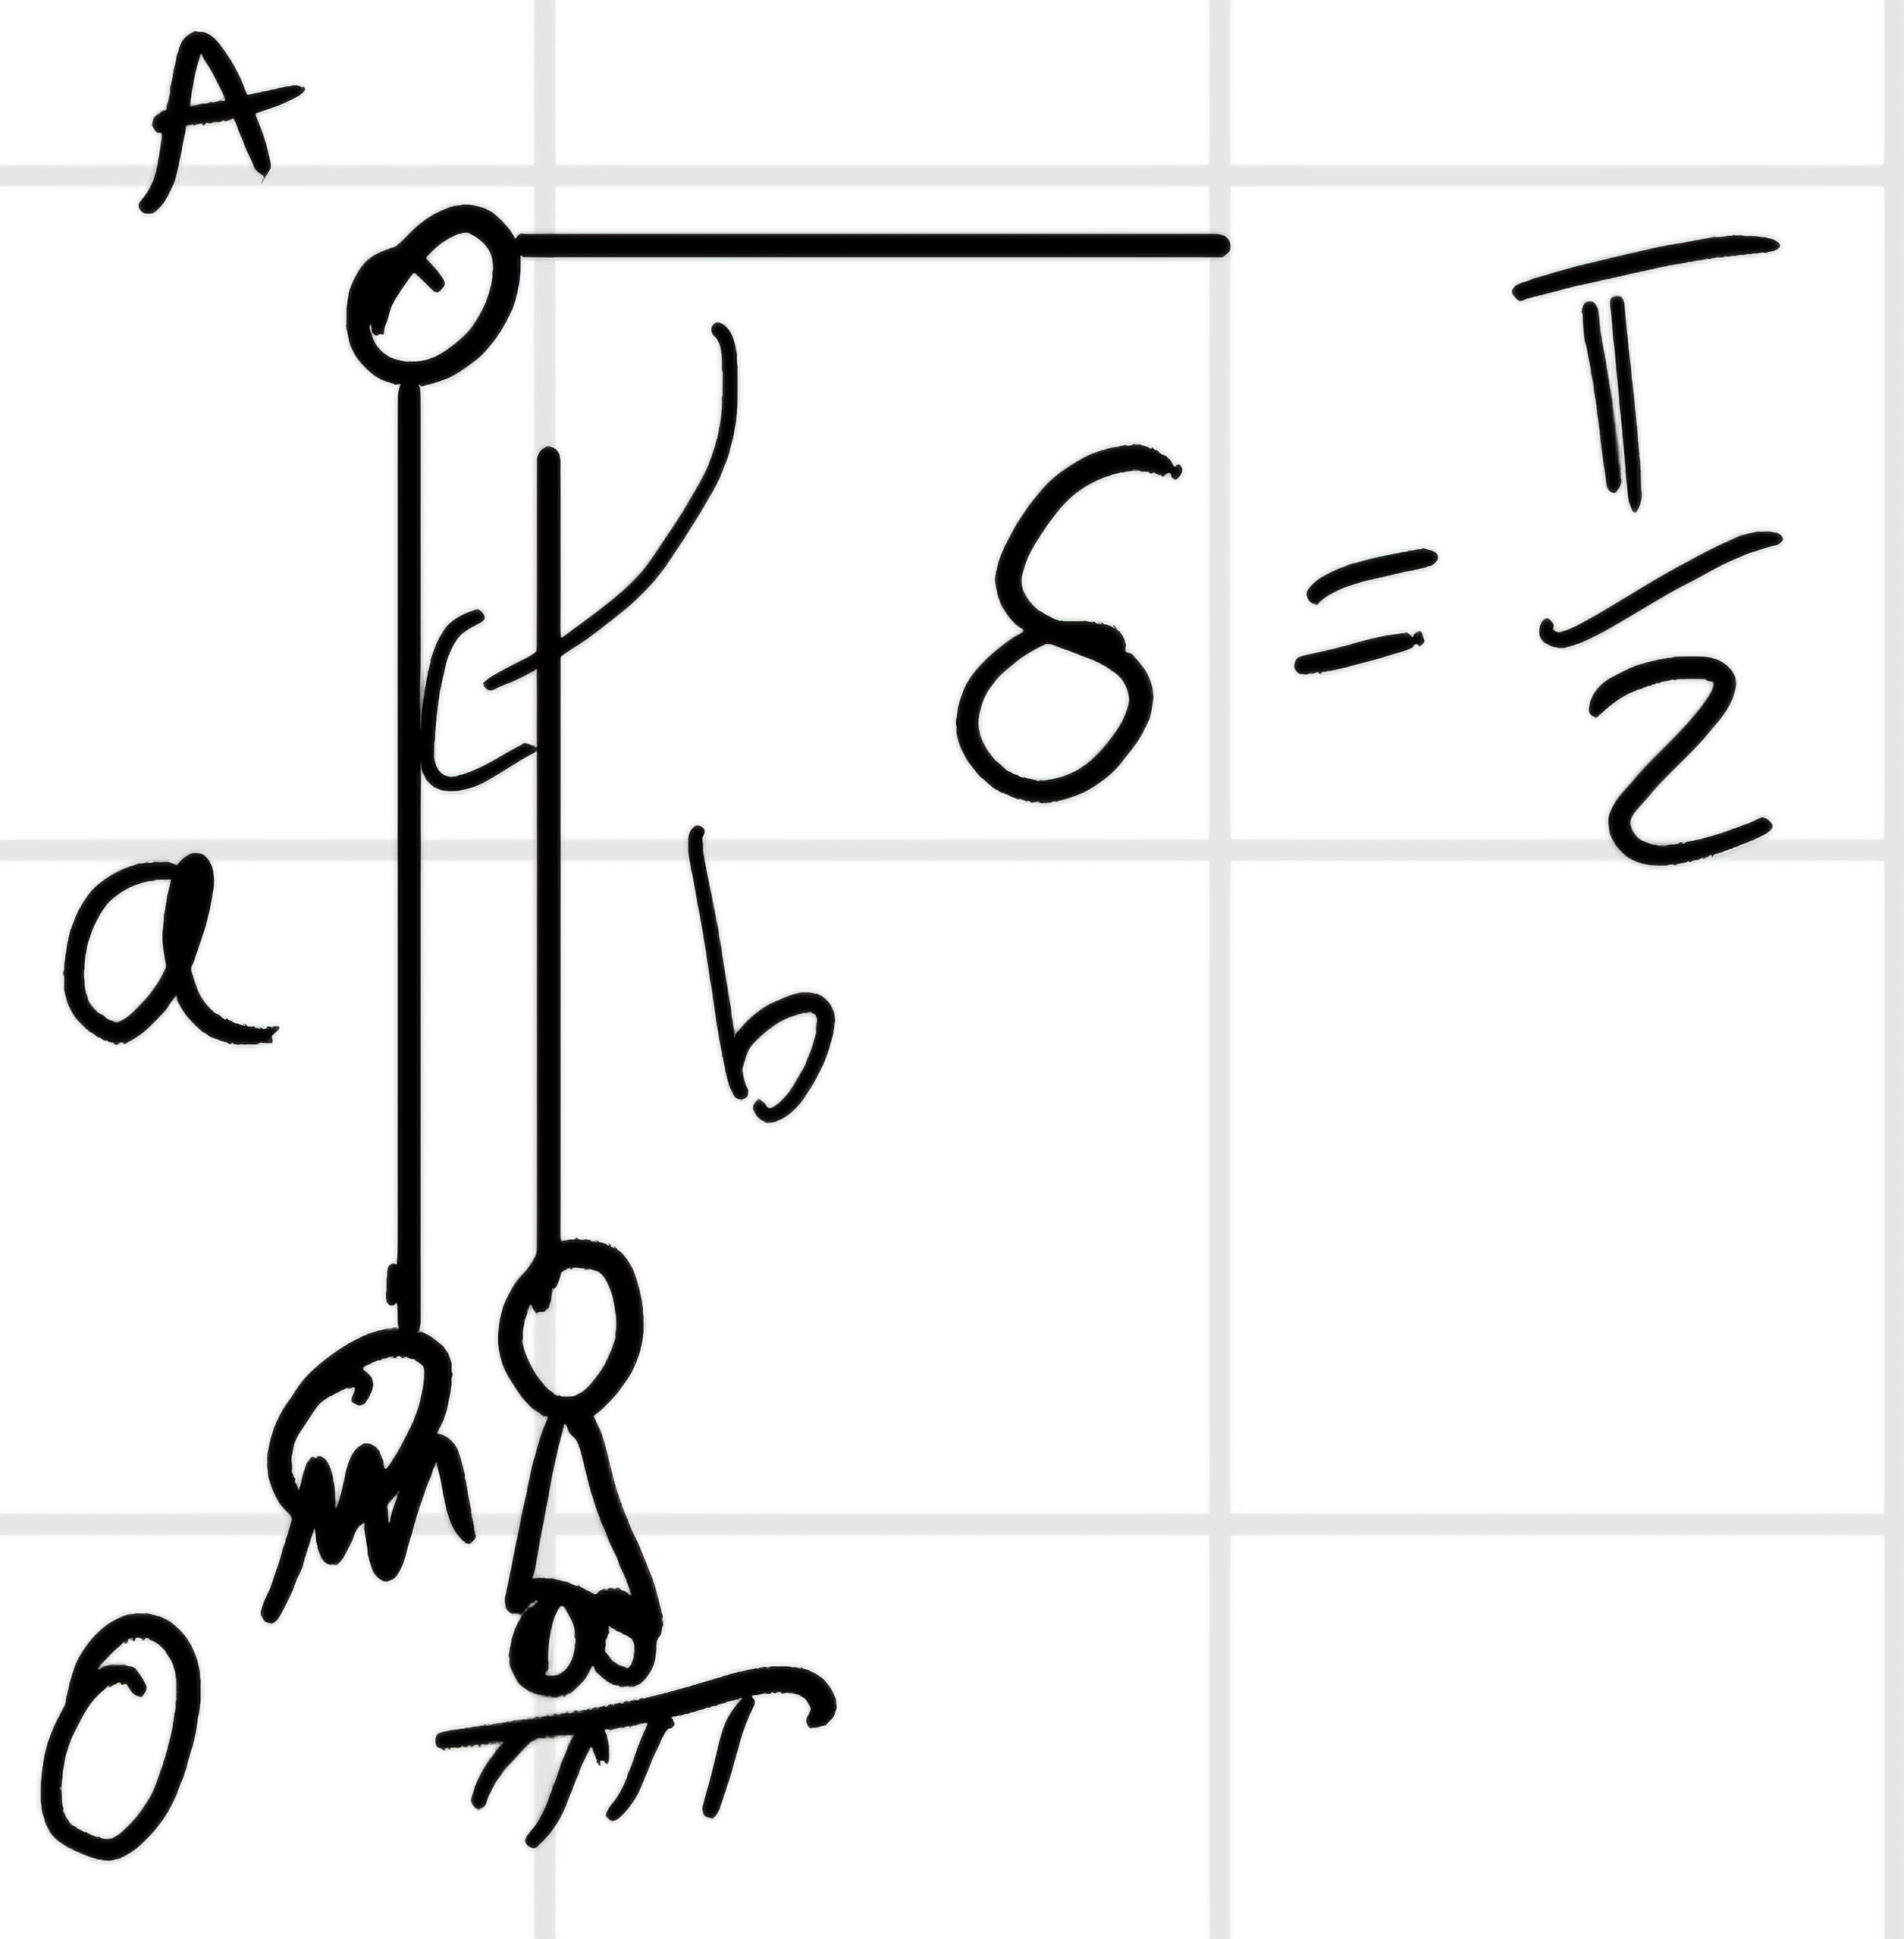 A
δ = π/2
a
b
O